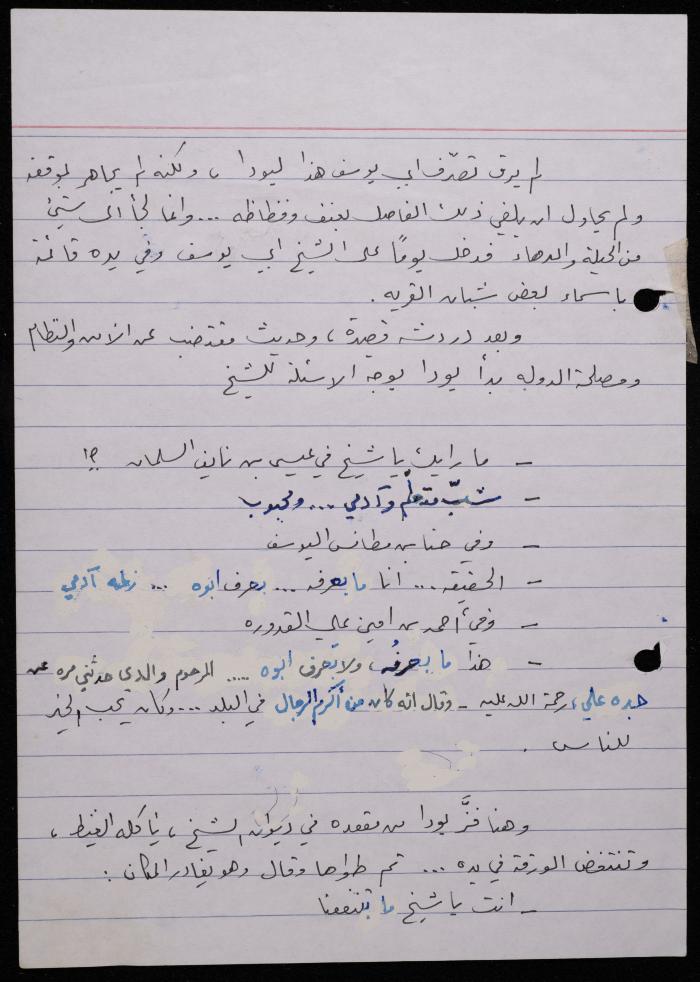 لم يرق تصرّف ابي يوسف هذا ليودا ، ولكنه لم يجاهر بموقفه
ولم يحاول ان يلغي ذلك الفاصل بعنف وفظاظه ... وانما لجأ الى شيئ
من الحيلة والدهاء فدخل يومًا على الشيخ ابي يوسف وفي يده قائمة
باسماء بعض شبان القريه .
وبعد دردشه قصيرة ، وحديث مقتضب عن الامن والنظام
ومصلحة الدوله بدأ يودا يوجه الاسئلة للشيخ
- ما رايك يا شيخ في عيسى بن نايف السلمان ؟!
- شبّ متعلّم وآدمي ... ومحبوب
- وفي حنا بن مطانس اليوسف
- الحقيقه ... انا ما بعرفه ... بعرف ابوه ... زلمه آدمي
- وفي أحمد بن امين علي القدوره
- هذا ما بعرفُه ، ولا بَعرف ابوه ..... المرحوم والدي حدثني مره عن
جده علي ، رحمة الله عليه - وقال انه كان من أكرم الرجال في البلد ... وكان يحب الخير
للناس .
وهنا فزَّ يودا من مقعده في ديوان الشيخ ، يأكله الغيظ ،
وتنتفض الورقة في يده ... ثم طواها وقال وهو يغادر المكان :
- انت يا شيخ ما بتنفعنا